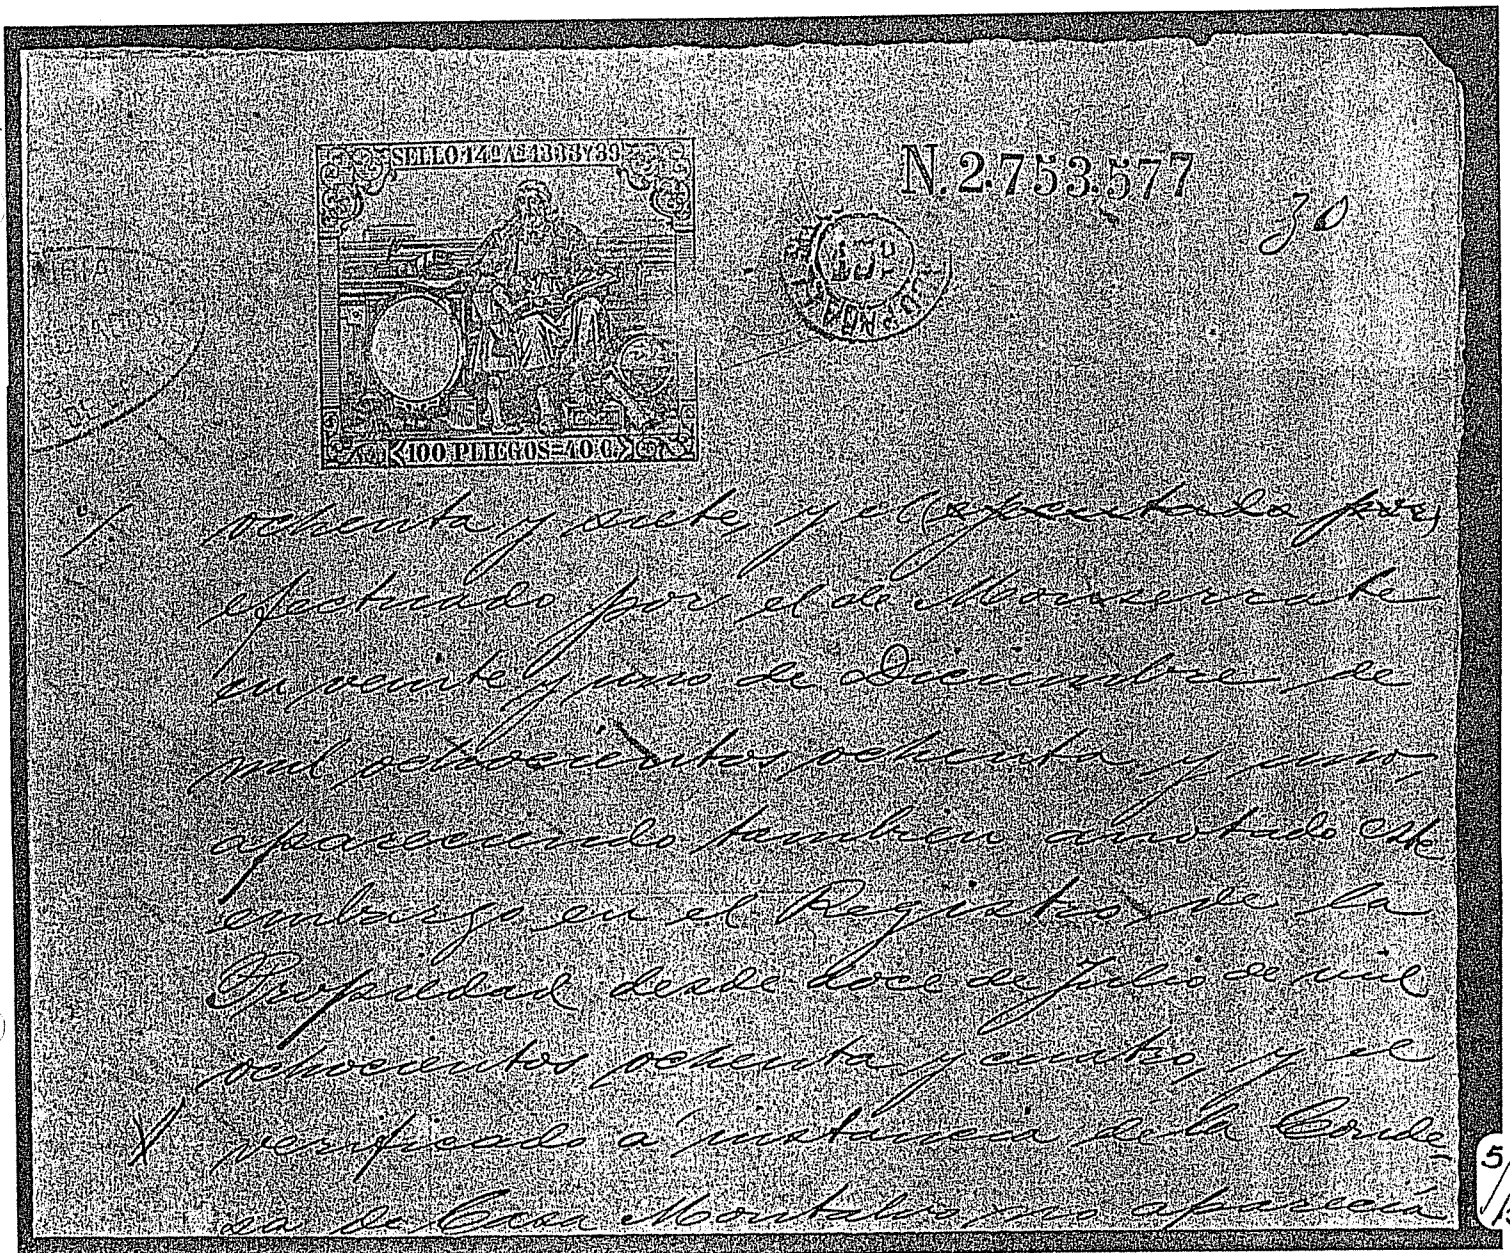 SELLO 14º AS 1898 Y 99
N. 2.753.577
30
100 PLIEGOS = 10 C.
ochenta y siete, y el
efectuado por el de Monserrate
en veinte y uno de Diciembre de
mil ochocientos ochenta y uno,
apareciendo tambien anotado este
embargo en el Registro de la
Propiedad desde doce de Julio de mil
ochocientos ochenta y cuatro, y el
verificado a instancia de la Conde-
sa de Casa Montalvo, no aparecia
5/